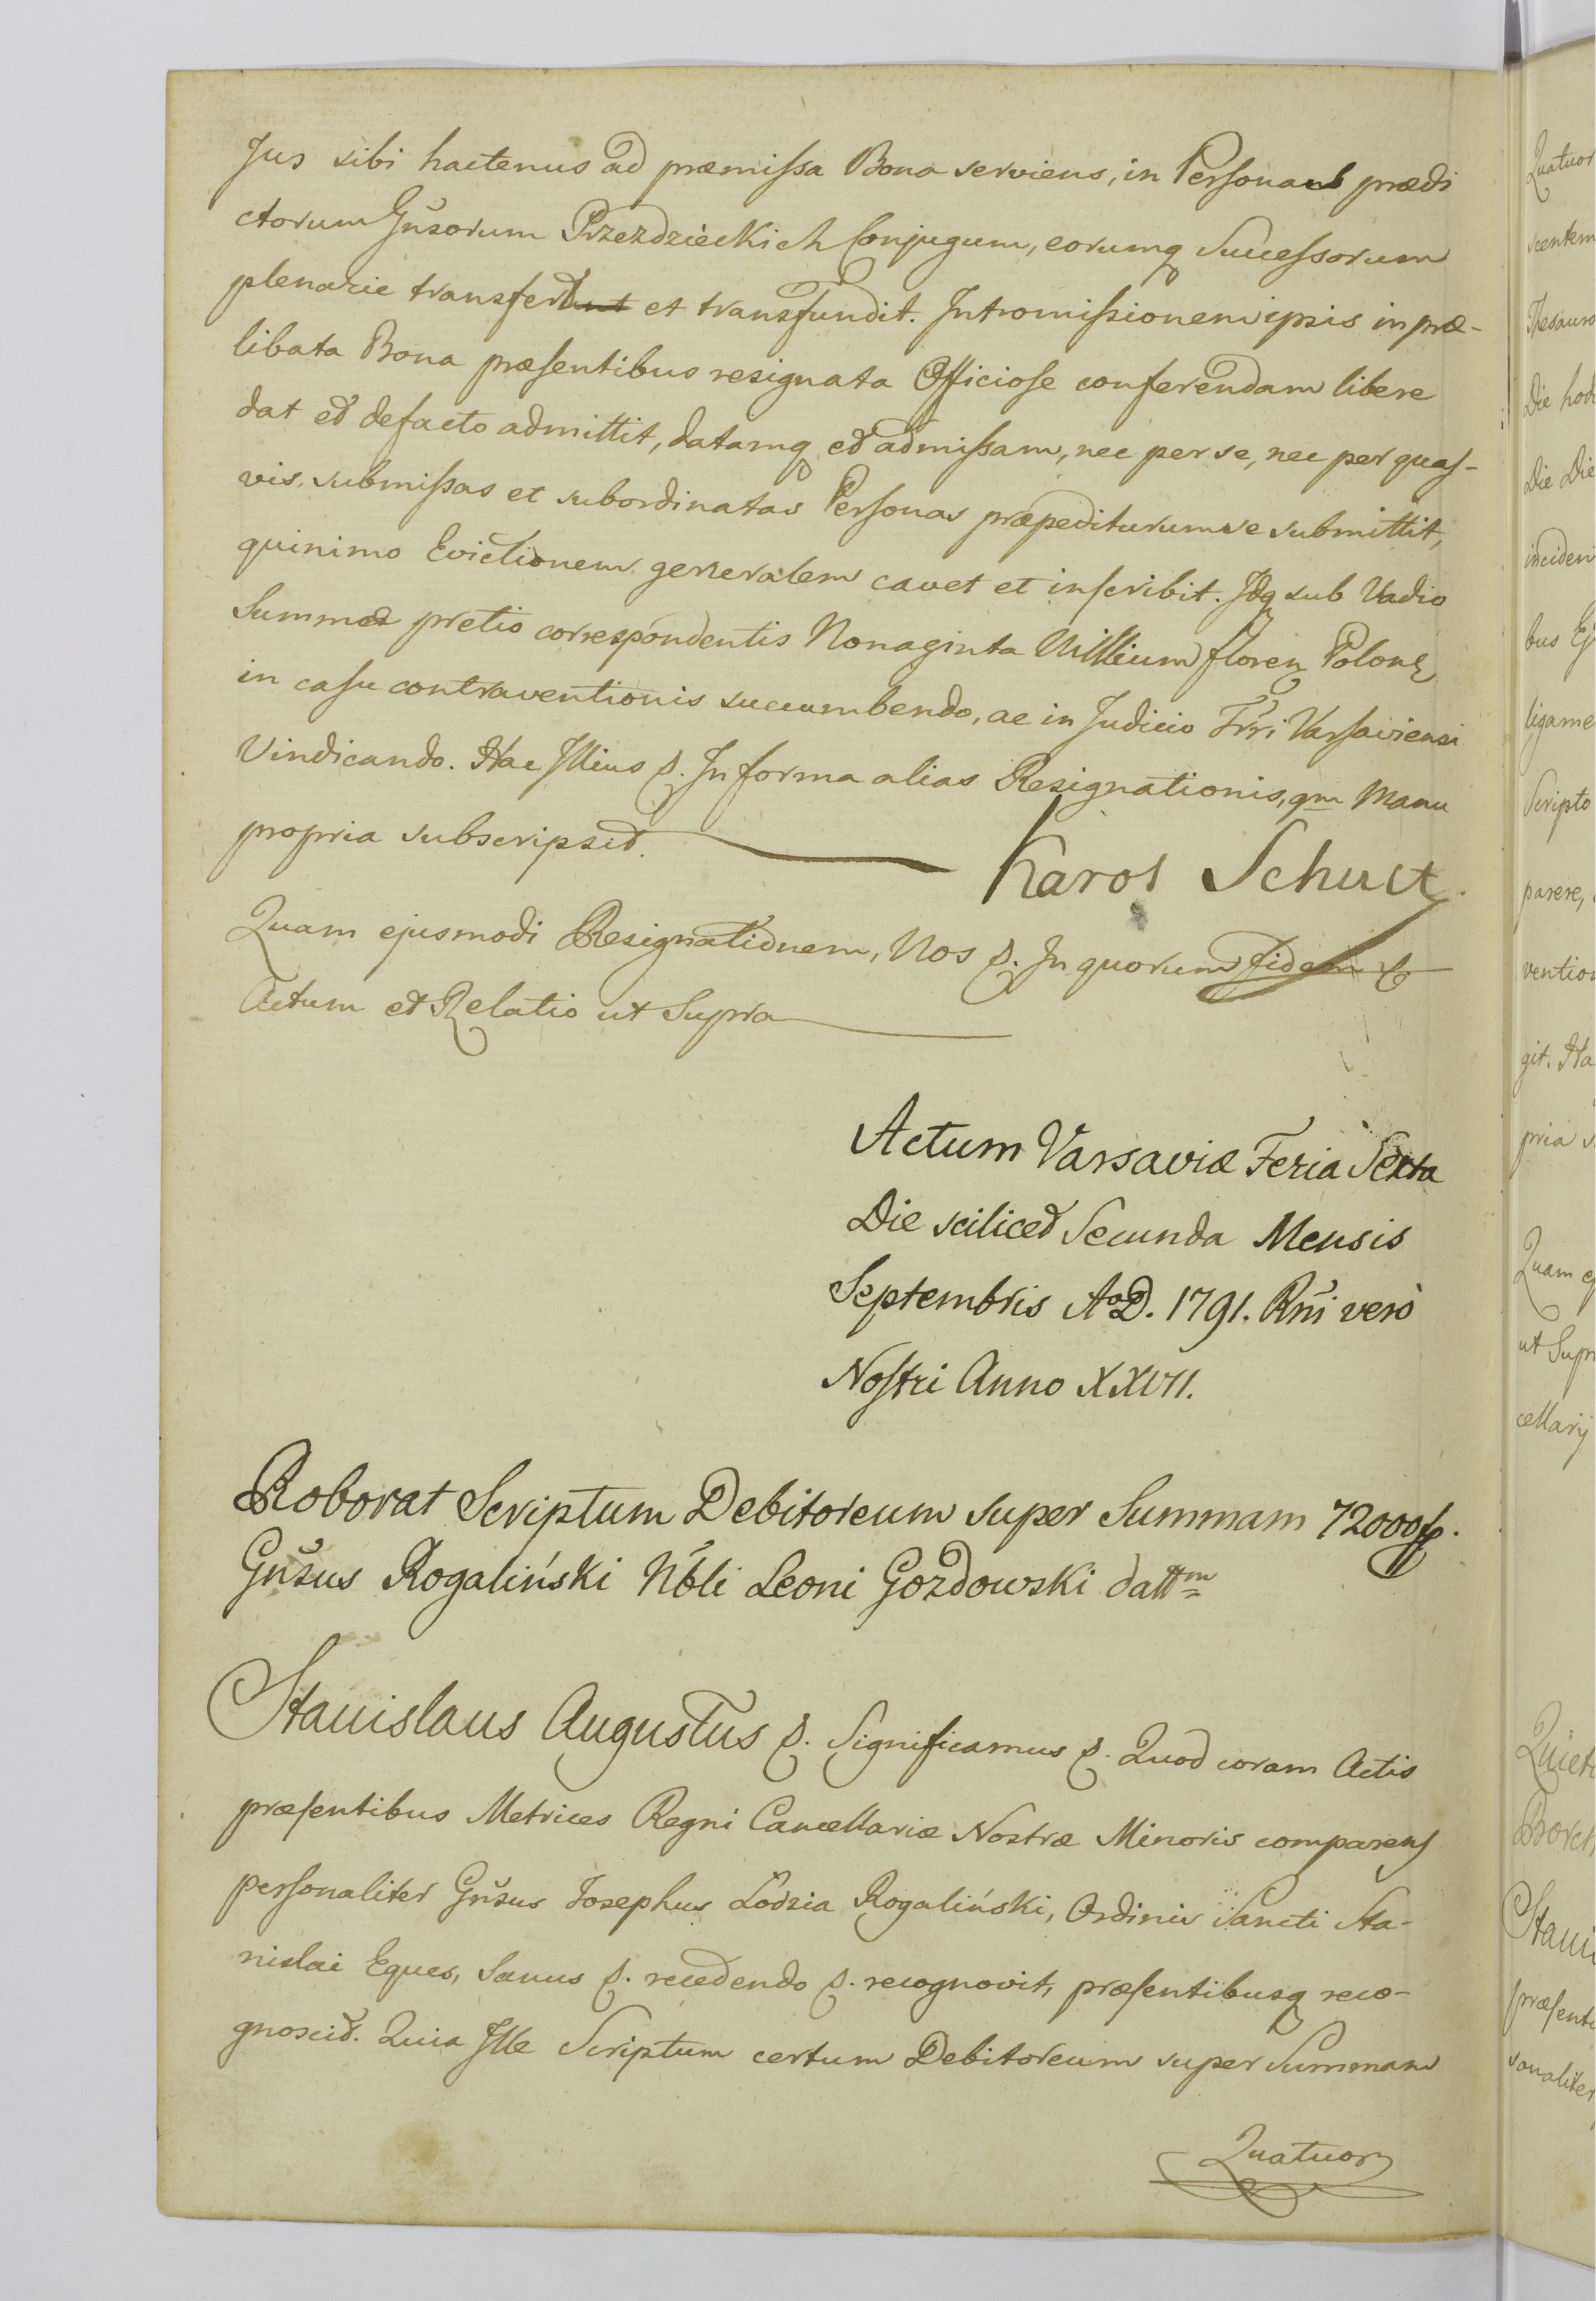 Jus sibi hactenus ad præmissa Bona serviens, in Personas prædi
ctorum Gñsorum Przezdzieckich Conjugum, eorumq Successorum
plenarie transfert et transfundit. Intromissionem ipsis in præ-
libata Bona præsentibus resignata Officiose conferendam libere
dat et defacto admittit, datamq et admissam, nec per se, nec per quas-
vis submissas et subordinatas Personas præpediturum se submittit,
quinimo Evictionem generalem cavet et inscribit. Idq sub Vadio
Summæ pretio correspondentis Nonaginta Millium floren Polon
in casu contraventionis succumbendo, ac in Judicio Trri Varsaviensi
Vindicando. Hac Illius p. In forma alias Resignationis, qm Manu
propria subscripsit.
Karol Schult
Quam ejusmodi Resignationem, Nos p. In quorum fidem &
Actum et Relatio ut Supra
Actum Varsaviæ Feria Sexta
Die scilicet Secunda Mensis
Septembris AoD. 1791. Rñi verò
Nostri Anno XXVII.
Roborat Scriptum Debitoreum super Summam 72000 fp.
Gñsus Rogaliński Nbli Leoni Gozdowski dattm
Stanislaus Augustus p. Significamus p. Quod coram Actis
præsentibus Metrices Regni Cancellariæ Nostræ Minoris comparens
personaliter Gñsus Josephus Łodzia Rogaliński, Ordinis Sancti Sta-
nislai Eques, Sanus p. recedendo p. recognovit, præsentibusq reco-
gnoscit. Quia Ille Scriptum certum Debitoreum super Summam
Quatuor